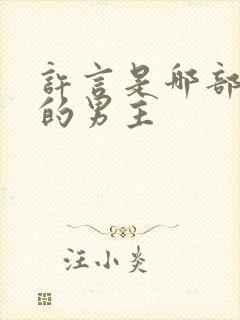 許言是哪部
的男主
汪小炎